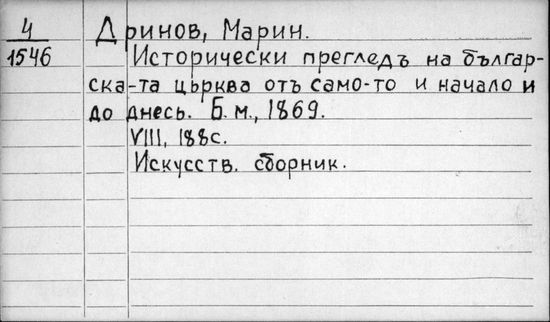 4
1546
Дринов, Марин.
Исторически прегледъ на българ-
ска-та църква отъ само-то и начало и
до днесь. Б.м., 1869.
VIII, 188с.
Искусств. сборник.